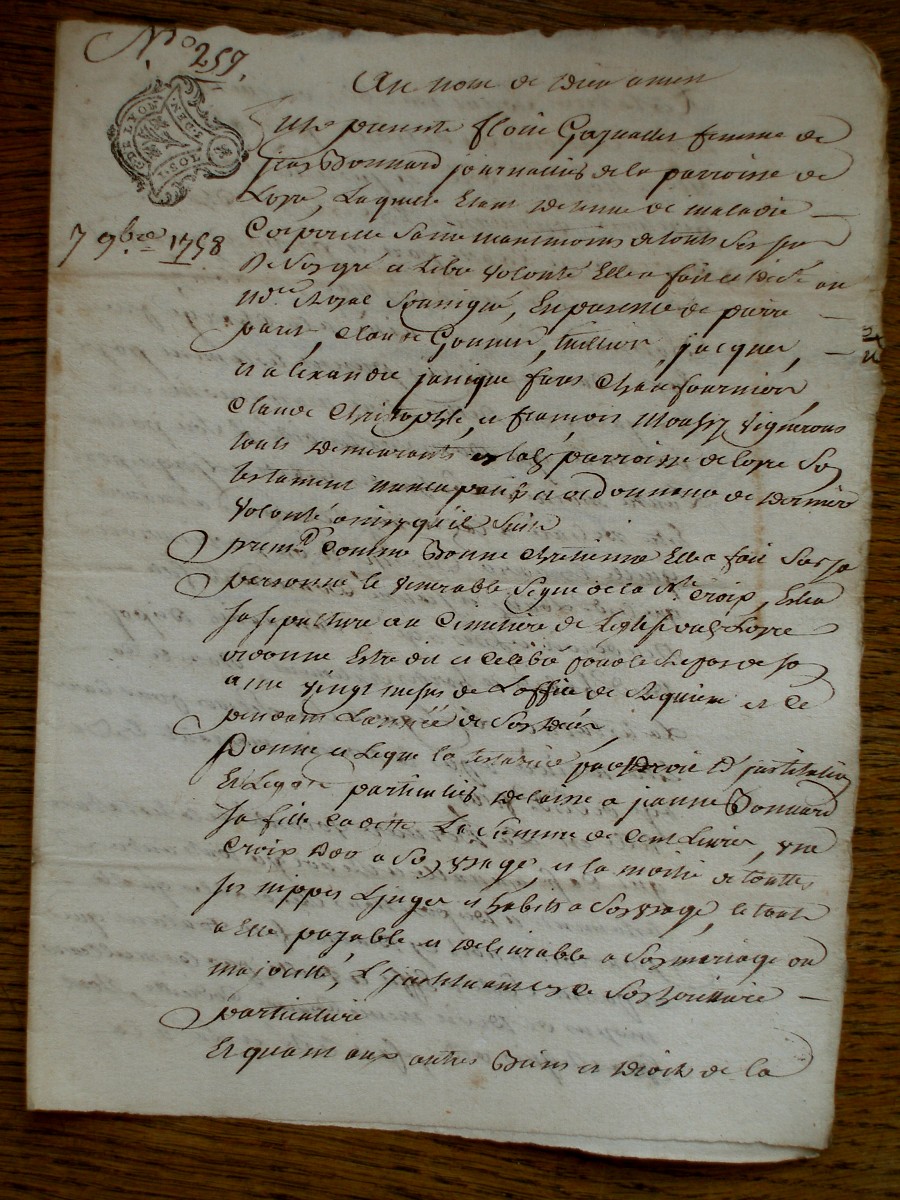 No 257.
GDE LYON
1 SOL
7 9bre 1758
Au nom de Dieu amen
fut presente femme de
Jean Bonnard journallier de la parroisse de
Loyre, Laquelle Etant detenue de maladie
Corporelle Saine neanmoins de touts Ses sens
De Son gré et Libre volonté Elle a fait et dicté au
Nre Royal Soussigné, En presence de pierre
Claude jacques,
et alexandre janique freres
Claude Christophle, et françois vignerons
touts demeurants parroisse de loyre Son
testament nuncupatif et ordonnance de derniere
Volonté ainsy qu'il Suit
premt Comme Bonne Chretienne Elle a fait Sur sa
personne le venerable Signe de la Ste Croix, Esleu
Sa Sepulture au Cimetiere de L'eglise dud Loyre
ordonne Estre dit et Celebré pour le Repos de son
ame vingt messes de L'office de Requiem et Ce
pendant L'année de Son deces
Donne et Legue la testatrice par droit D'institution
Et Legat particulier delaisse a jeanne Bonnard
Sa fille Cadette La Somme de Cent Livres, une
Croix D'or a Son usage, et la moitié de toutes
Ses nippes Linges et habits a Son usage, le tout
a Elle payable et delivrable a Son mariage ou
majorité, L'instituant en Ce Son heritiere
particuliere
Et quant aux autres Biens et Droits de la